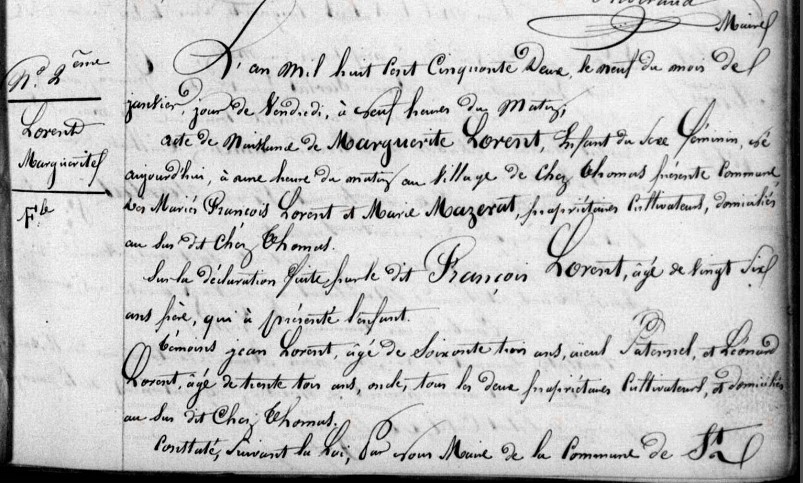 Maire
N.º 2ème
Lorent
Marguerite
F.lle
L'an mil huit Cent Cinquante Deux, le neuf du mois de
janvier, jour de Vendredi, à neuf heures du Matin;
acte de Naissance de Marguerite Lorent, Enfant du Sexe féminin, né
aujourdhui, à une heure du matin au Village de Chez Thomas présente Commune
des Mariés François Lorent et Marie Mazerat, propriétaires Cultivateurs, domiciliés
au sus dit Chez Thomas.
Sur la déclaration faite par le dit François Lorent, âgé de vingt Six
ans père, qui à présenté l'enfant.
témoins jean Lorent, âgé de Soixante trois ans, aïeul Paternel, et Léonard
Lorent, âgé de trente trois ans, oncle, tous les deux propriétaires Cultivateurs, et domiciliés
au sus dit Chez Thomas.
Constaté, Suivant la Loi, Par nous Maire de la Commune de St